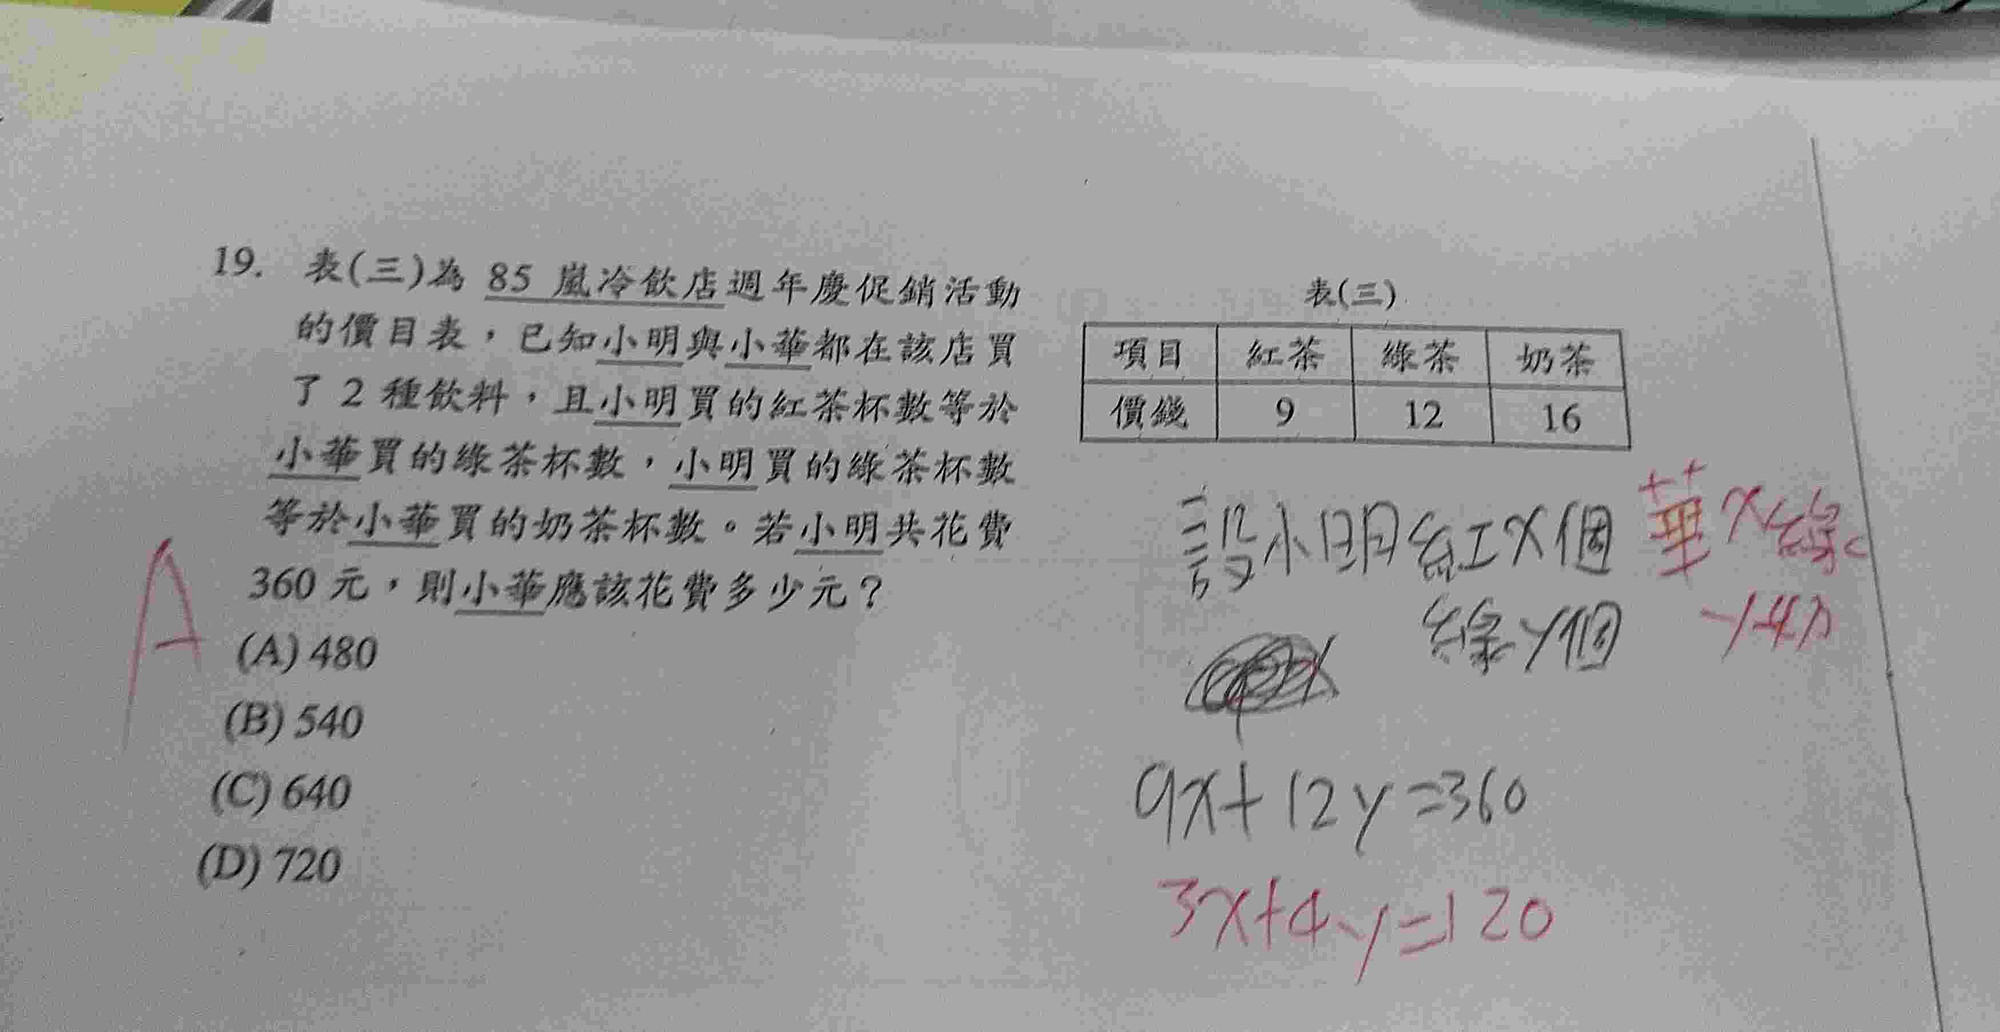 19. 表(三)為 85 嵐冷飲店週年慶促銷活動
的價目表，已知小明與小華都在該店買
了 2 種飲料，且小明買的紅茶杯數等於
小華買的綠茶杯數，小明買的綠茶杯數
等於小華買的奶茶杯數。若小明共花費
360 元，則小華應該花費多少元？
(A) 480
(B) 540
(C) 640
(D) 720
A
表(三)
項目 紅茶 綠茶 奶茶
價錢 9 12 16
設小明紅x個
綠y個
華x綠
y奶
9x+12y=360
3x+4y=120